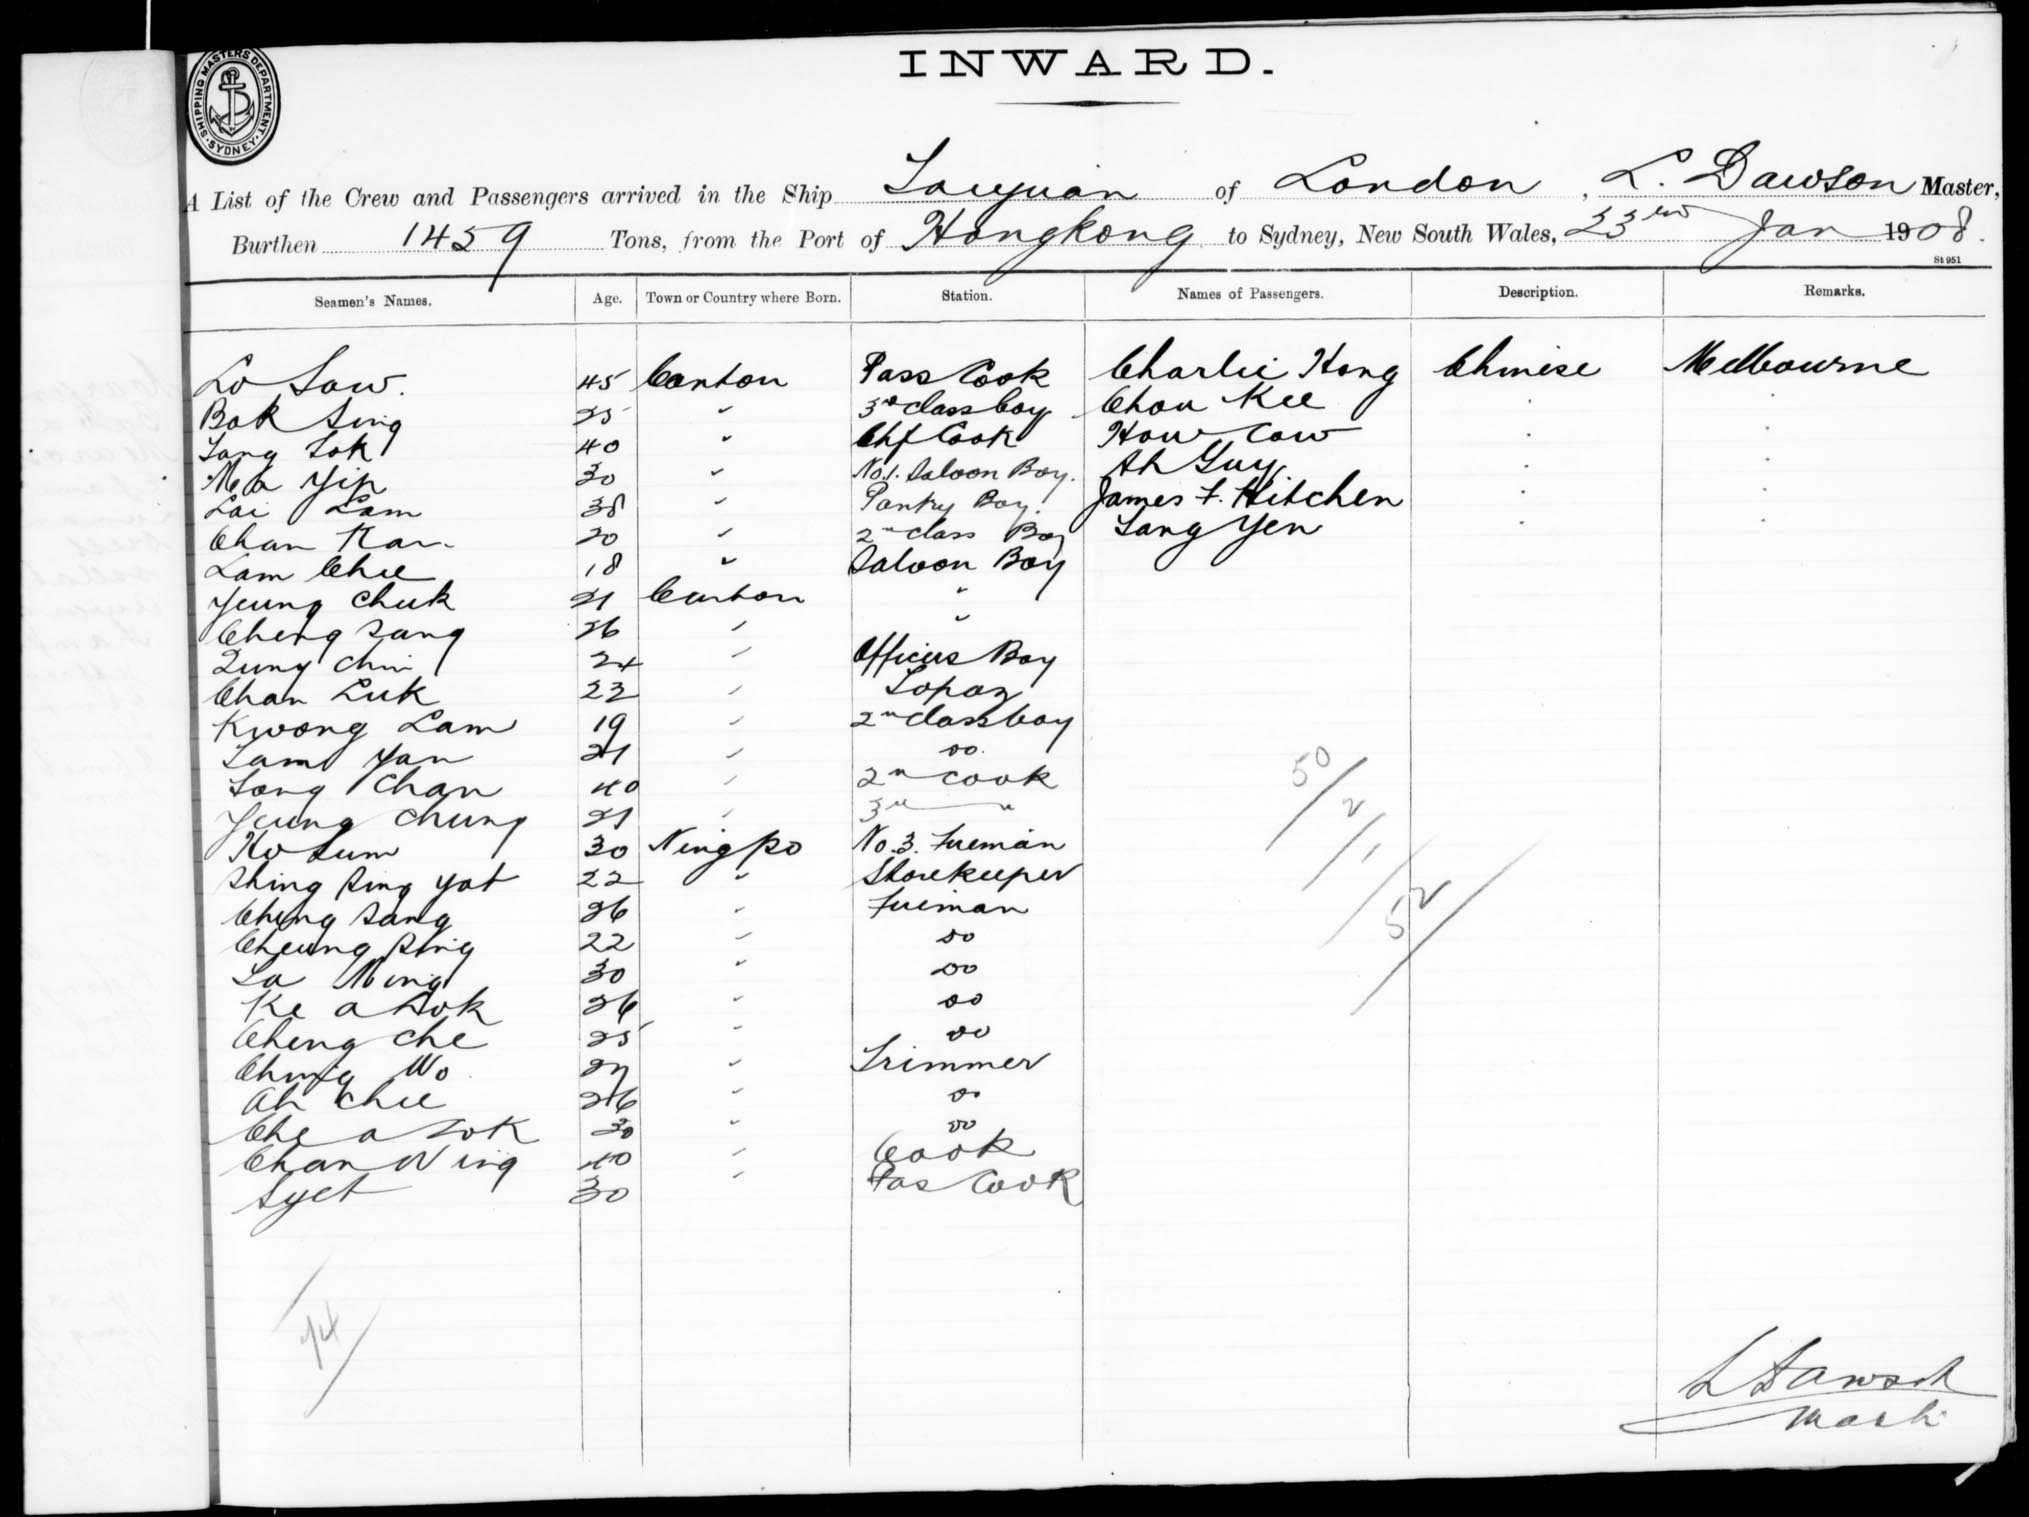 SHIPPING MASTERS DEPARTMENT. SYDNEY
INWARD.
A List of the Crew and Passengers arrived in the Ship Taiyuan of London, L. Dawson Master,
Burthen 1459 Tons, from the Port of Hongkong to Sydney, New South Wales, 23rd Jan 1908.
St 951
Seamen's Names. Age. Town or Country where Born. Station. Names of Passengers. Description. Remarks.
Lo Sow. 45 Canton Pass Cook Charlie Hong Chinese Melbourne
Bok Sing 25 " 3rd class boy Chou Kee
Tang Sok 40 " Chf Cook How Cow
Ma Yip 30 " No. 1. Saloon Boy. Ah Guy
Lai Lam 38 " Pantry Boy. James F. Hitchen
Chan Kai 20 " 2nd class Boy Tang Yen
Lam Chee 18 " Saloon Boy
Yeung Chuk 21 Canton "
Cheng Sang 26 " "
Lung Chin 24 " Officers Boy
Chan Luk 22 " Topaz
Kwong Lam 19 " 2nd class boy
Lam Yan 21 " do.
Tong Chan 40 " 2nd Cook
Yeung Chung 21 " 3rd "
Ko Sum 30 Ningpo No. 3. Fireman
Shing Sing Yat 22 " Storekeeper
Ching Sang 26 " Fireman
Cheung Sing 22 " do
La Ming 30 " do
Ke a Sok 26 " do
Cheng Che 25 " do
Ching Wo 27 " Trimmer
Ah Chee 26 " do
Che a Sok 30 " do
Chan Ning 40 " Cook
Syet 30 " Pas Cook
50/2/1/52
74
L Dawson
Mast